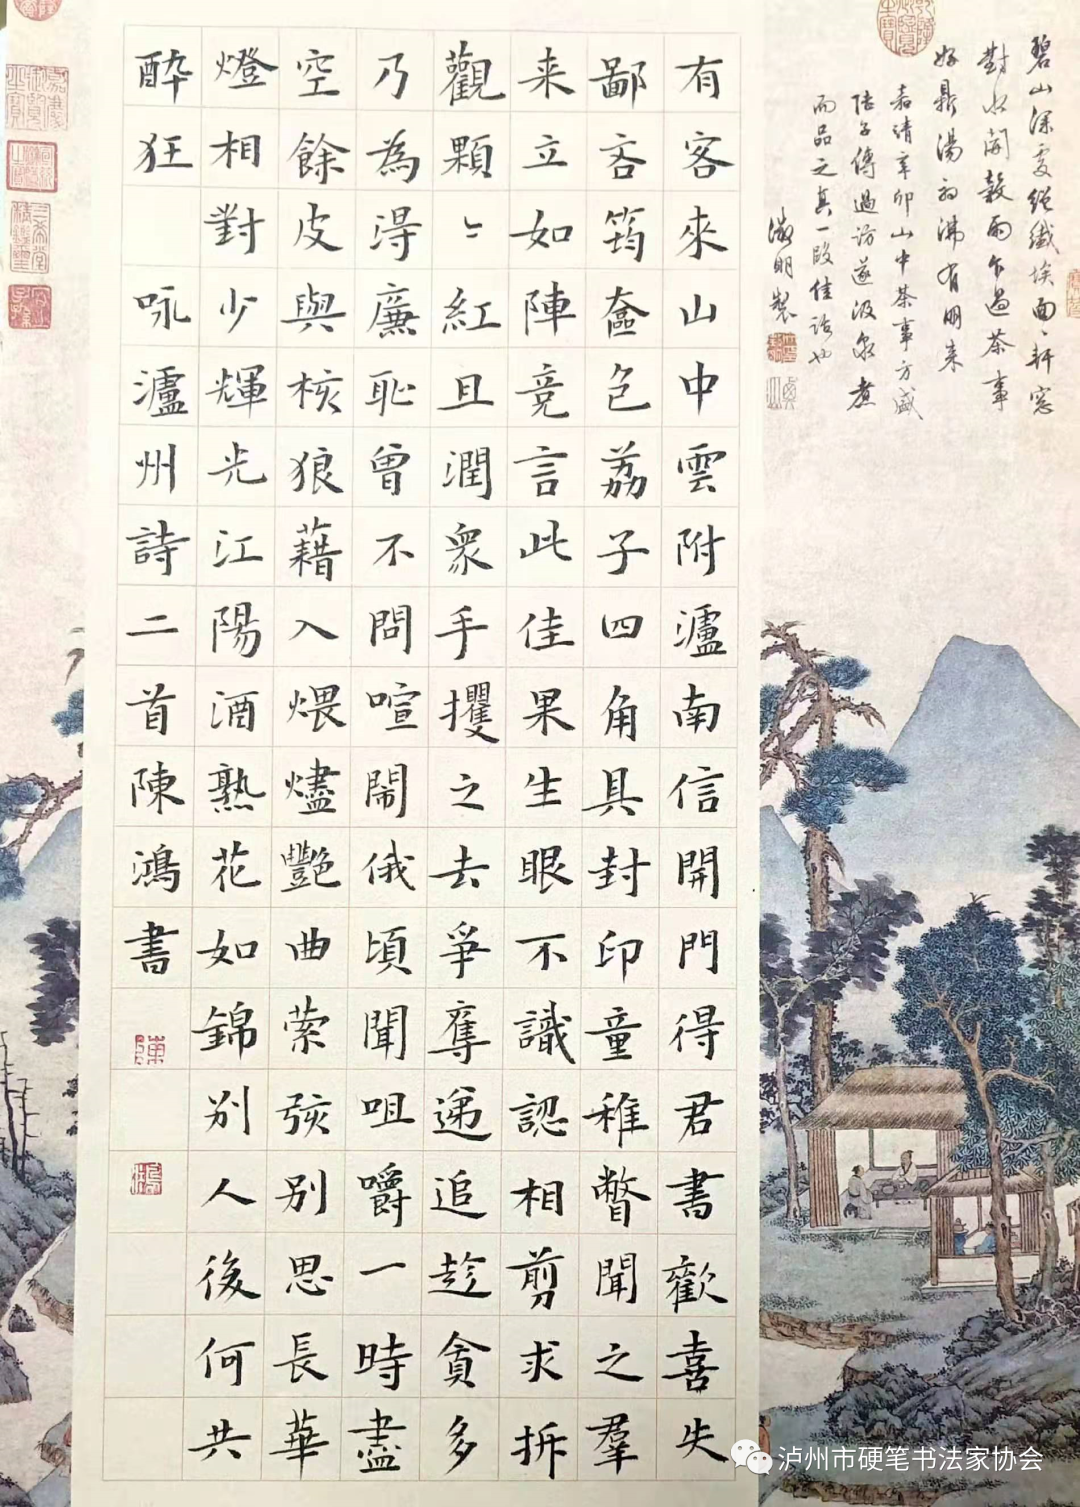 有客來山中雲附瀘南信開門得君書歡喜失
鄙吝筠奩包荔子四角具封印童稚瞥聞之羣
来立如陣竞言此佳果生眼不識認相剪求拆
觀顆〻紅且潤眾手攫之去爭奪递追趁貪多
乃為淂廉恥曾不問喧鬧俄頃聞咀嚼一時盡
空餘皮與核狼藉入煨燼艷曲萦弦别思長華
燈相對少輝光江陽酒熟花如錦别人後何共
醉狂
咏瀘州詩二首陳鴻書
碧山深處絕纖埃面〻軒窓
對水開穀雨乍過茶事
好鼎湯初沸有朋来
嘉靖辛卯山中茶事方盛
陆子傳過訪遂汲泉煮
而品之真一段佳話也
徵明製
泸州市硬笔书法家协会